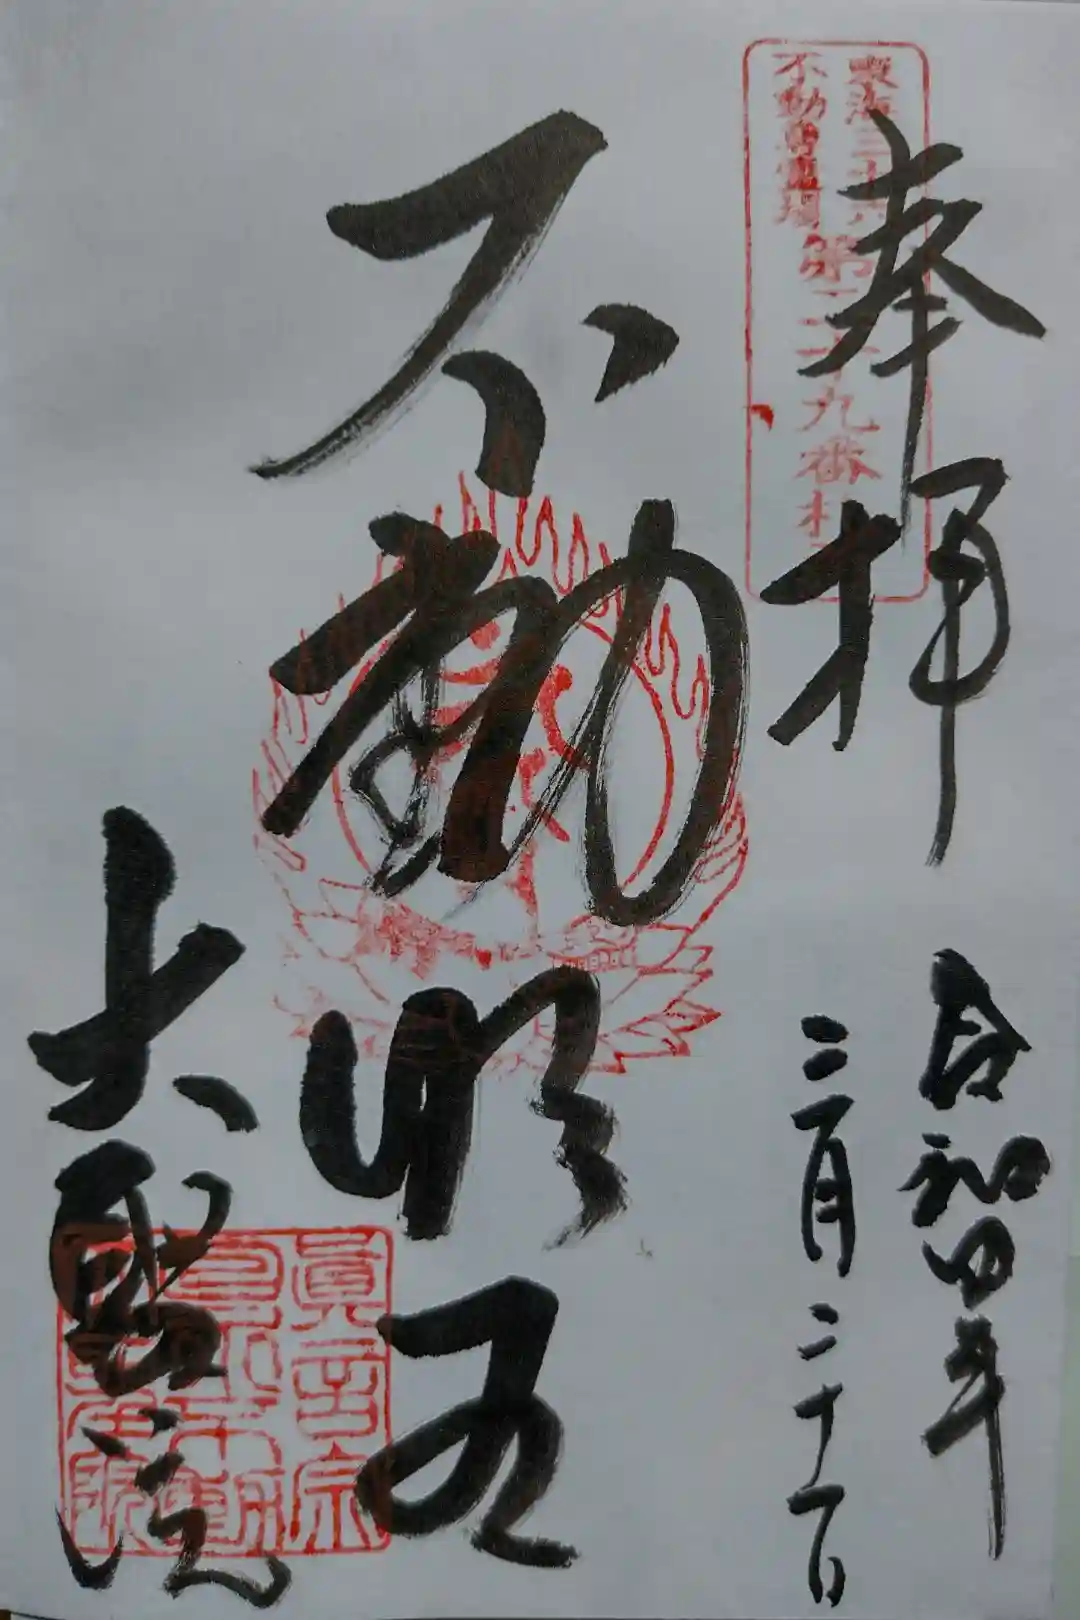 奉拝
東海三十六
不動尊霊場
第二十九番札
令和四年
三月二十一日
不動明王
大聖院
真言宗